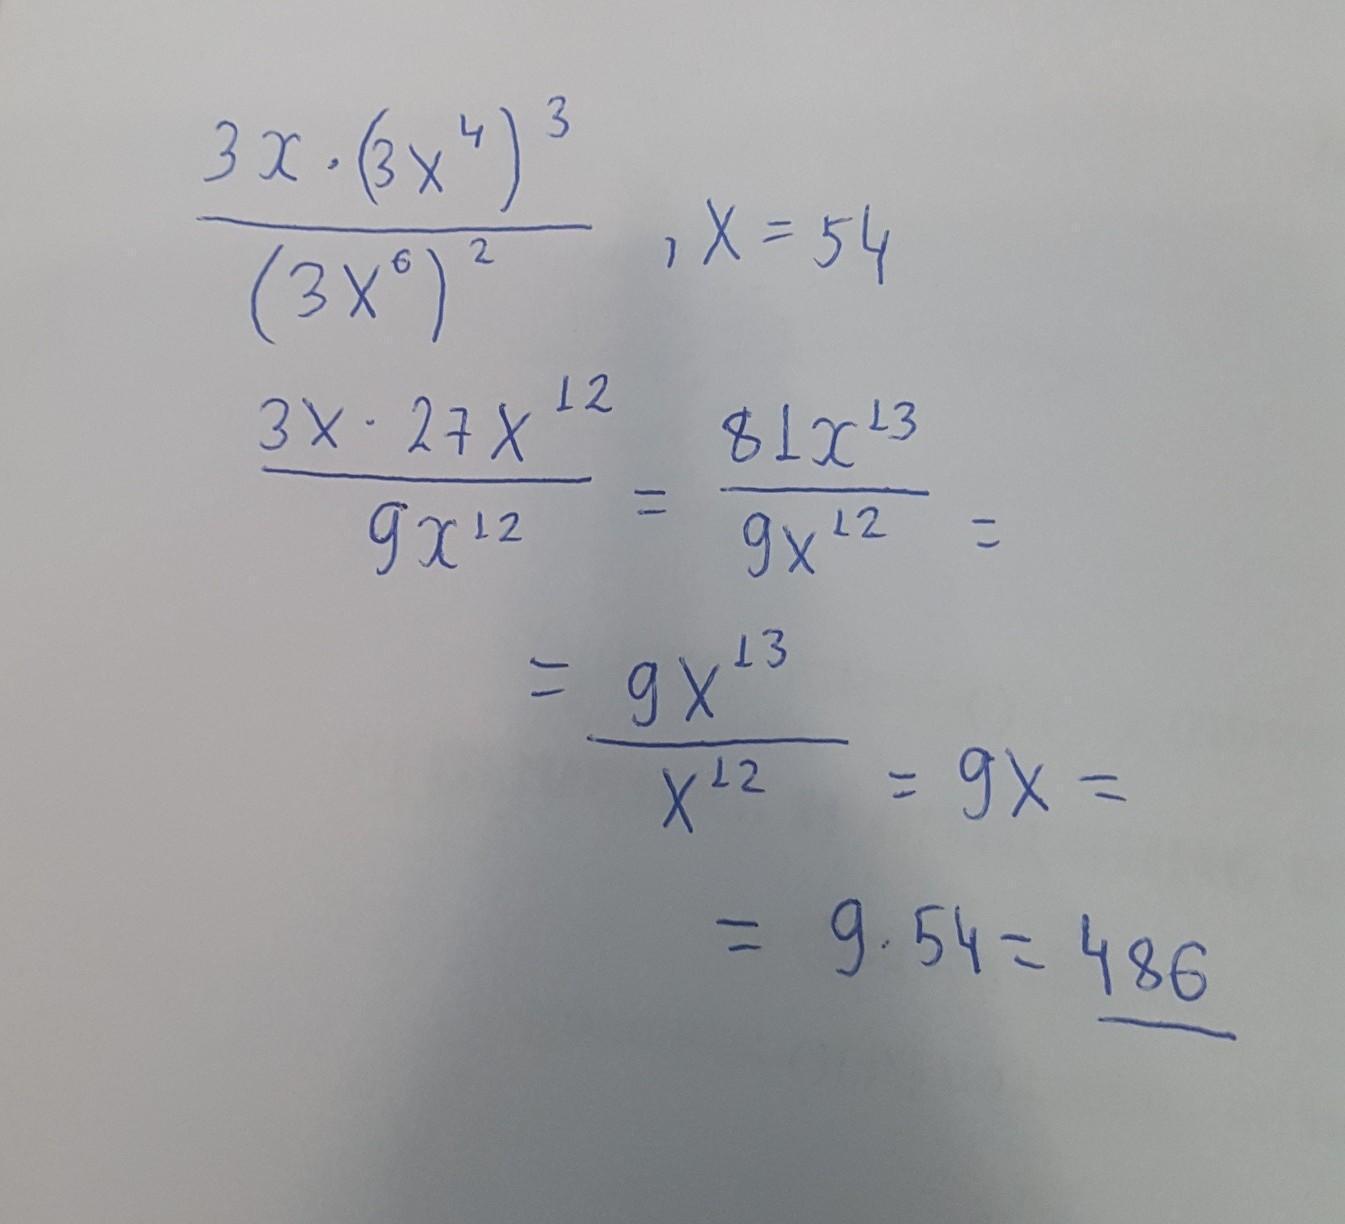 3x · (3x⁴)³ / (3x⁶)² , x = 54
3x · 27x¹² / 9x¹² = 81x¹³ / 9x¹² =
= 9x¹³ / x¹² = 9x =
= 9 · 54 = 486